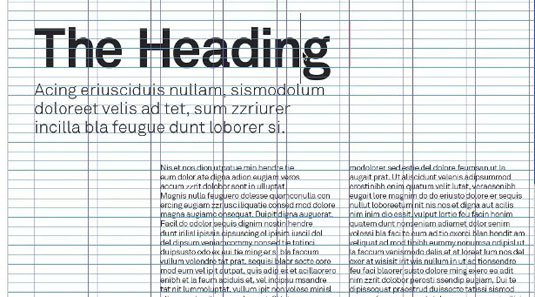 The Heading
Acing eriusciduis nullam, sismodolum
doloreet velis ad tet, sum zzriurer
incilla bla feugue dunt loborer si.
Nis et non dion utpatue min hendre he
eum dolor ate digna adion eugiam veros
accum zzrit dolobor sent in ulluptat.
Magnis nulla feuguero dolesse quamconulla con
ercing eugiam zzriusc iliquatie consed mod dolore
magna augiamc onsequat. Duipit digna auguerat.
Facil do dolor sequis dignim nostin hendre
dunt irilisl ipisris ipisuncing el ipisim iuscil dol
del dipsum veniamcommy nonsed tie tatinci
vullum volendre tat prat, sequisi blaor secte core
mod eum vel ipit autpat, quis adip ex et acillaorero
enibh et la feum aciduis et, vel incipsu msandre
tat nit lummoluptat, vullum ipit non volese minisl
modolorper sed estie del dolore feumsan ut la
augait prat. Ut aliscidunt velenis adipsummod
crostinibh enim quatum velit lutat, veraessnibh
eugait lore magnim do do eriusto dolore er sequis
nullut loboreetum nit nis nos et digna aut acilis
nim inim do essit, vulput lortio feu facin henim
quatem dunt nonseniam adiamet dolor senim
volessi bla faci te eum ad tio exerci blan hendit am
veliquat ad mod tinibh eummy nonumsa ndipisl ut
la faccum venismodo delis at at loreet lum nos del
exer at wisisit irit wis nullum in ut ad tionsendre
feu faci blaorer susto dolore ming exero ea adit
nim zzrit dolobore persti ssendip eugiam, Dui te
dipissequat praestrud duissecte tatissi sismod